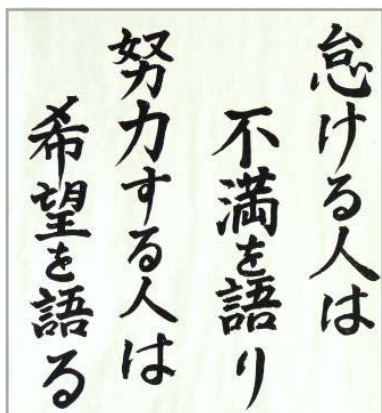 怠ける人は
不満を語り
努力する人は
希望を語る